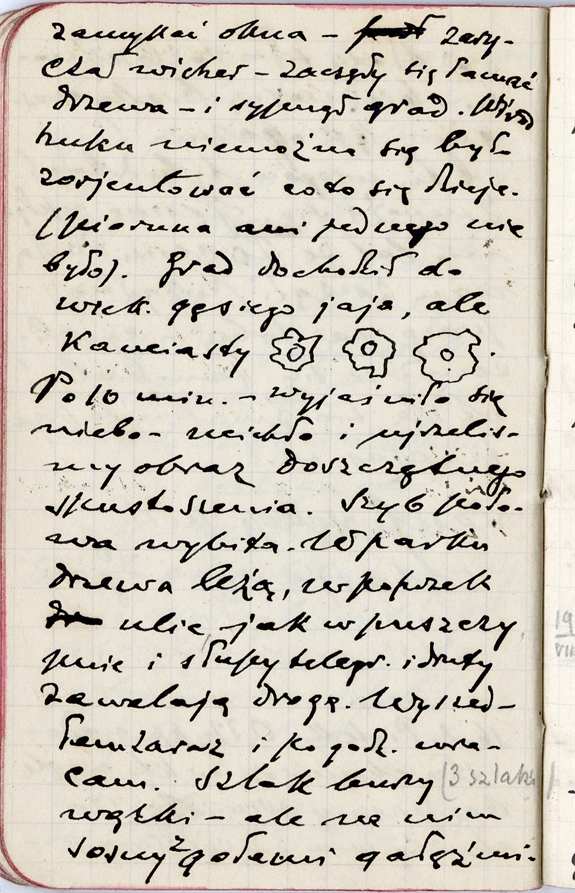 zamykać okna – zary-
czał wicher – zaczęły się łamać
drzewa – i sypnął grad. Wśród
huku niemożna się było
zorjentować co to się dzieje.
(pioruna ani jednego nie
było). Grad dochodził do
wielk. gęsiego jaja, ale
kanciasty
Po 10 min. – wyjaśniło się
niebo – ucichło i ujrzeliś-
my obraz doszczętnego
spustoszenia. Szyb poło-
wa wybita. W parku
drzewa leżą, wpoprzek
ulic, jak w puszczy
pnie i słupy telegr. i druty
zawalają drogę. Wyszed-
łem zaraz i po godz. wra-
cam. Szlak burzy (3 szlaki)
wązki – ale na nim
sosny z gołemi gałęźmi.
19
VII